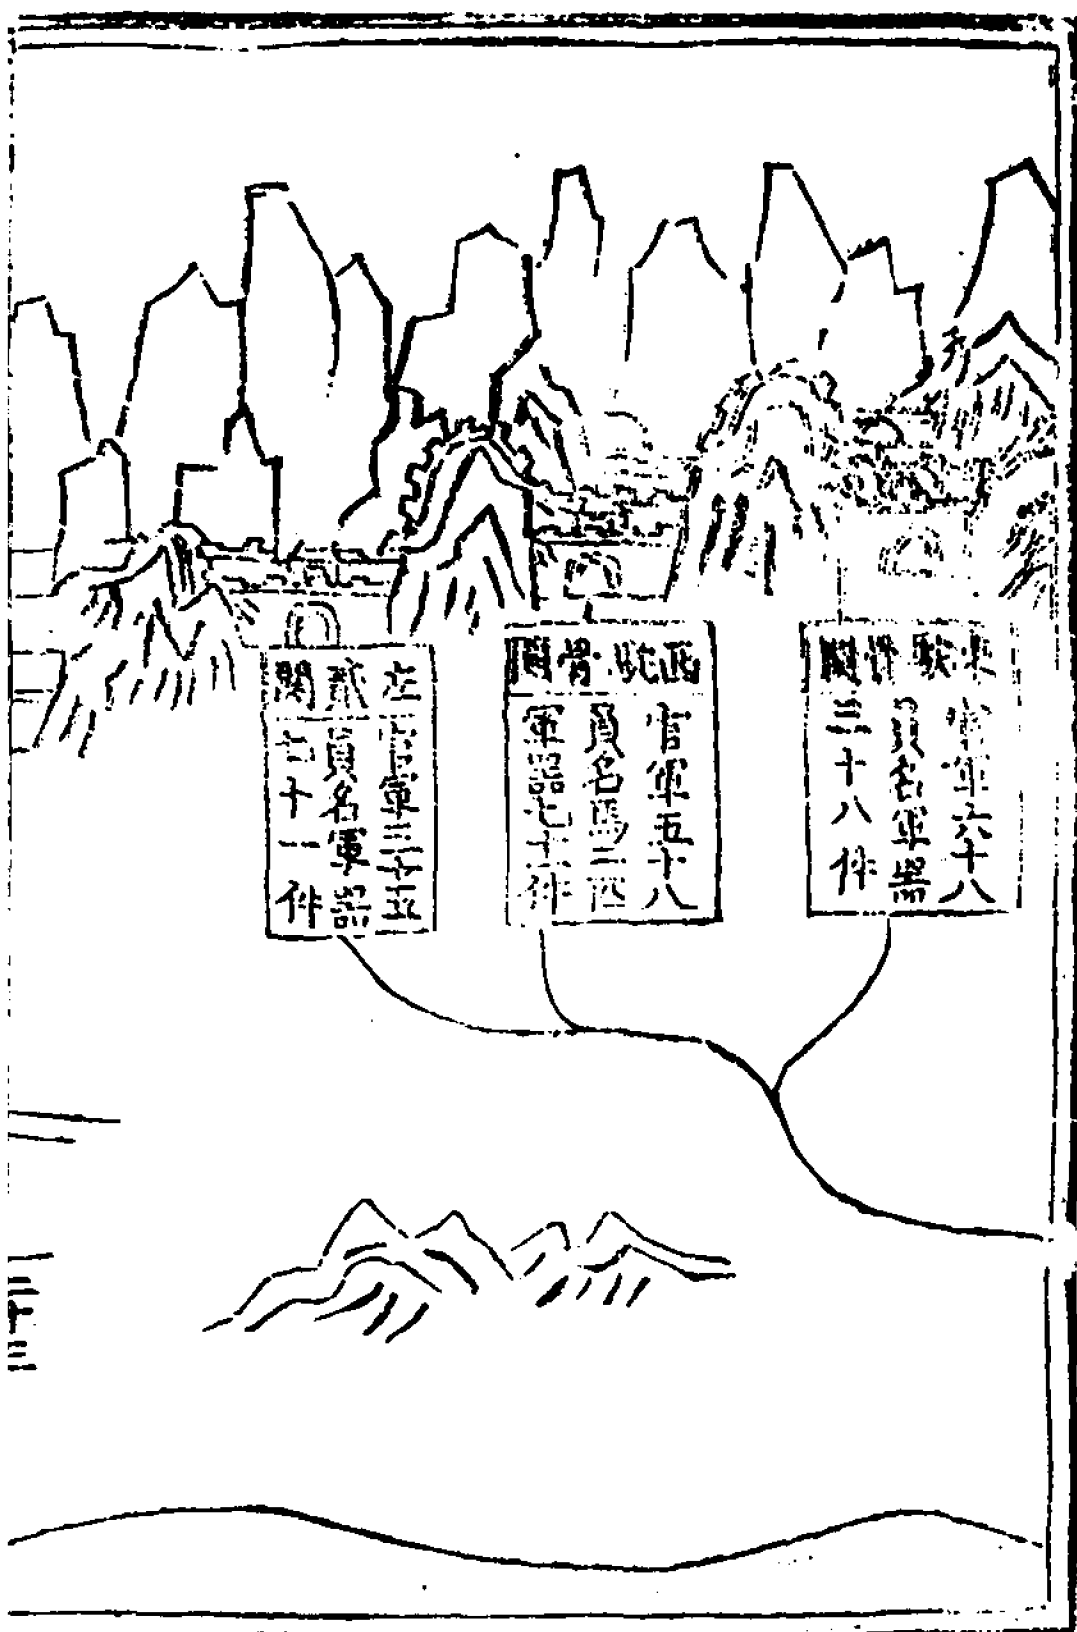 東駄骨關
官軍六十八
員名軍器
三十八件
西駄骨關
官軍五十八
員名馬二匹
軍器七十二件
左貳關
官軍三十五
員名軍器
七十一件